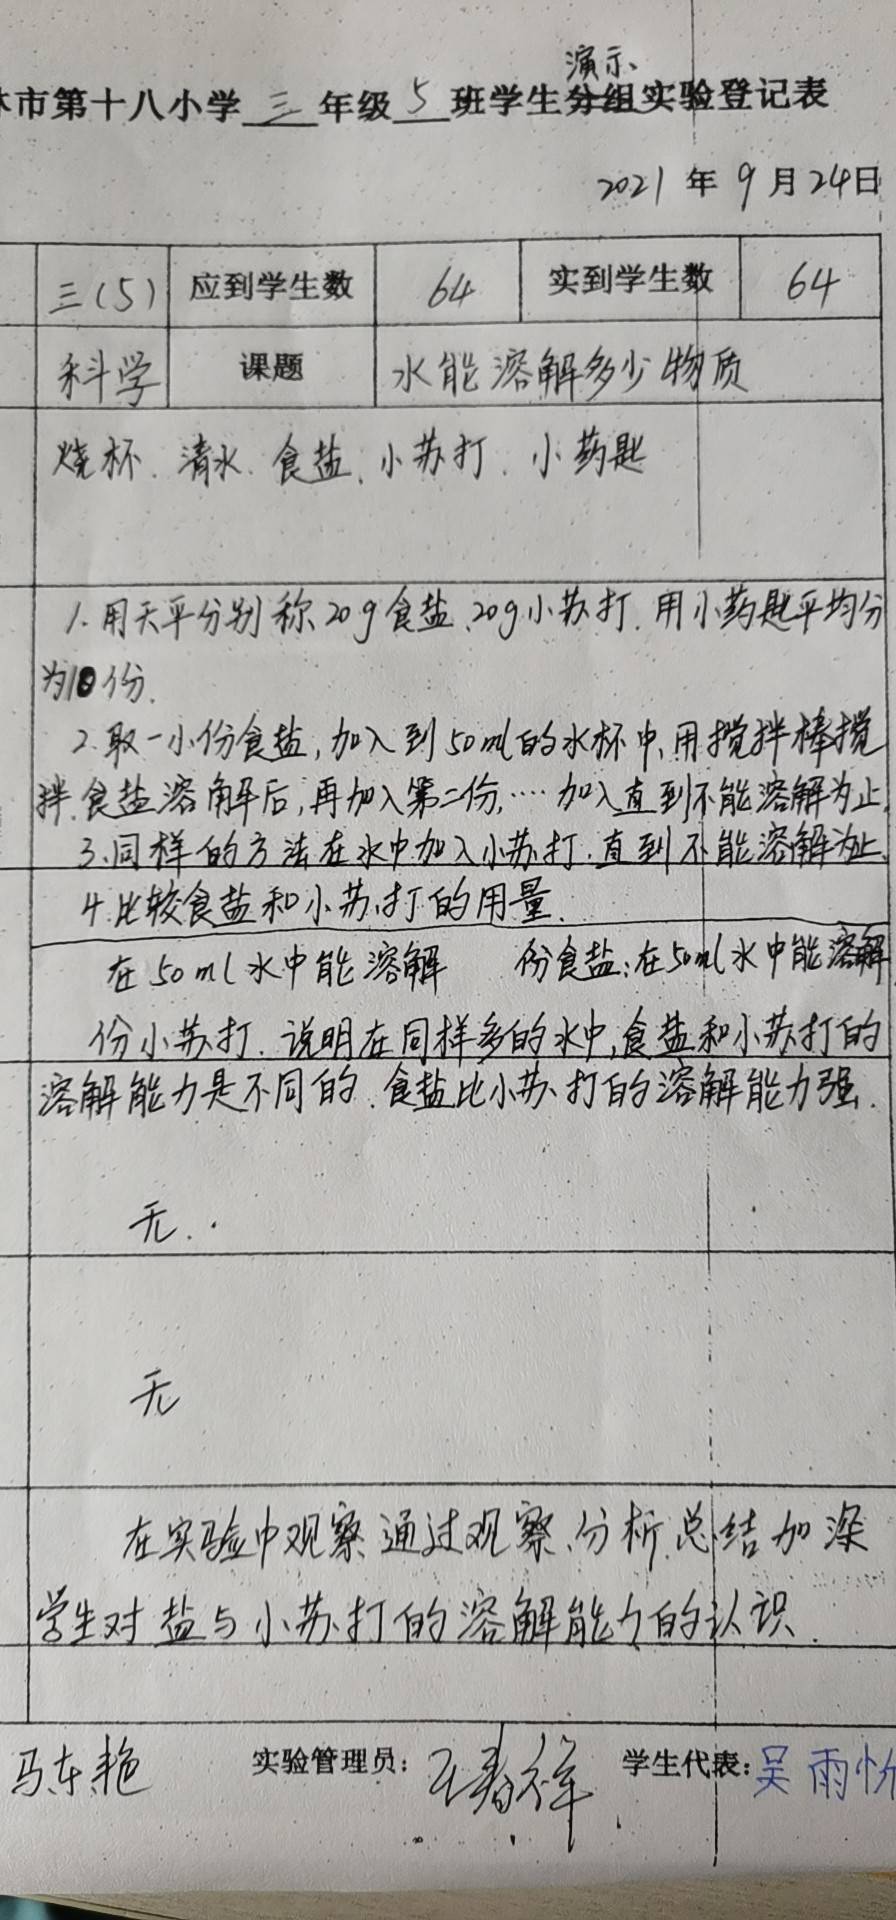 演示
市第十八小学三年级5班学生分组实验登记表
2021年9月24日
三(5) 应到学生数 64 实到学生数 64
科学 课题 水能溶解多少物质
烧杯、清水、食盐、小苏打、小药匙
1.用天平分别称20g食盐、20g小苏打.用小药匙平均分
为10份.
2.取一小份食盐,加入到50ml的水杯中,用搅拌棒搅
拌.食盐溶解后,再加入第二份,……加入直到不能溶解为止.
3.同样的方法在水中加入小苏打.直到不能溶解为止.
4.比较食盐和小苏打的用量.
在50ml水中能溶解 份食盐;在50ml水中能溶解
份小苏打.说明在同样多的水中,食盐和小苏打的
溶解能力是不同的.食盐比小苏打的溶解能力强.
无.
无
在实验中观察通过观察、分析.总结加深
学生对盐与小苏打的溶解能力的认识.
马东艳 实验管理员: 学生代表:吴雨忻